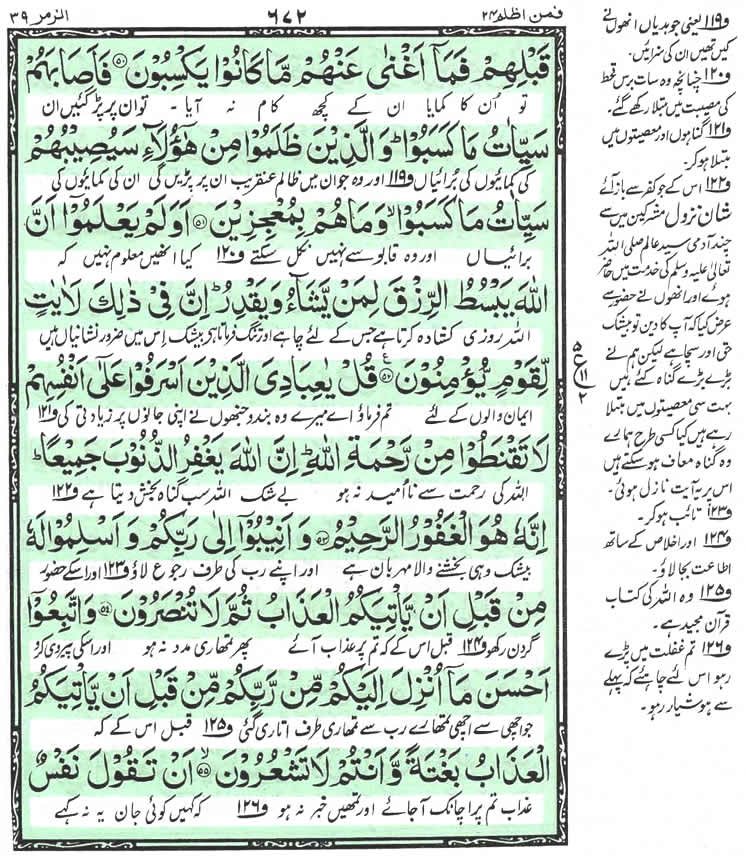 الزمر ٣٩
٦٧٢
فمن اظلم ٢٤
قَبْلِهِمْ فَمَاۤ اَغْنٰى عَنْهُمْ مَّا كَانُوْا يَكْسِبُوْنَ ۝٥٠ فَاَصَابَهُمْ
تو اُن کا کمایا ان کے کچھ کام نہ آیا ۔ تو ان پر پڑ گئیں ان
سَيِّاٰتُ مَا كَسَبُوْا ؕ وَ الَّذِيْنَ ظَلَمُوْا مِنْ هٰۤؤُلَآءِ سَيُصِيْبُهُمْ
کی کمائیوں کی بُرائیاں ف۱۱۹ اور وہ جو ان میں ظالم عنقریب ان پر پڑیں گی ان کی کمائیوں کی
سَيِّاٰتُ مَا كَسَبُوْا ۙ وَ مَا هُمْ بِمُعْجِزِيْنَ ۝٥١ اَوَلَمْ يَعْلَمُوْۤا اَنَّ
برائیاں اور وہ قابو سے نہیں نکل سکتے ف۱۲۰ کیا انھیں معلوم نہیں کہ
اللّٰهَ يَبْسُطُ الرِّزْقَ لِمَنْ يَّشَآءُ وَ يَقْدِرُ ؕ اِنَّ فِيْ ذٰلِكَ لَاٰيٰتٍ
اللہ روزی کشادہ کرتا ہے جس کے لئے چاہے اور تنگ فرماتا ہے بیشک اس میں ضرور نشانیاں ہیں
لِّقَوْمٍ يُّؤْمِنُوْنَ ۝٥٢ قُلْ يٰعِبَادِيَ الَّذِيْنَ اَسْرَفُوْا عَلٰۤى اَنْفُسِهِمْ
ایمان والوں کے لئے تم فرماؤ اے میرے وہ بندو جنھوں نے اپنی جانوں پر زیادتی کی ف۱۲۱
لَا تَقْنَطُوْا مِنْ رَّحْمَةِ اللّٰهِ ؕ اِنَّ اللّٰهَ يَغْفِرُ الذُّنُوْبَ جَمِيْعًا ؕ
اللہ کی رحمت سے نا اُمید نہ ہو بے شک اللہ سب گناہ بخش دیتا ہے ف۱۲۲
اِنَّهٗ هُوَ الْغَفُوْرُ الرَّحِيْمُ ۝٥٣ وَ اَنِيْبُوْۤا اِلٰى رَبِّكُمْ وَ اَسْلِمُوْا لَهٗ
بیشک وہی بخشنے والا مہربان ہے اور اپنے رب کی طرف رجوع لاؤ ف۱۲۳ اور اسکے حضور
مِنْ قَبْلِ اَنْ يَّاْتِيَكُمُ الْعَذَابُ ثُمَّ لَا تُنْصَرُوْنَ ۝٥٤ وَ اتَّبِعُوْۤا
گردن رکھو ف۱۲۴ قبل اس کے کہ تم پر عذاب آئے پھر تمھاری مدد نہ ہو اور اسکی پیروی کرو
اَحْسَنَ مَاۤ اُنْزِلَ اِلَيْكُمْ مِّنْ رَّبِّكُمْ مِّنْ قَبْلِ اَنْ يَّاْتِيَكُمُ
جو اچھی سے اچھی تمھارے رب سے تمھاری طرف اتاری گئی ف۱۲۵ قبل اس کے کہ
الْعَذَابُ بَغْتَةً وَّ اَنْتُمْ لَا تَشْعُرُوْنَ ۝٥٥ اَنْ تَقُوْلَ نَفْسٌ
عذاب تم پر اچانک آ جائے اور تمھیں خبر نہ ہو ف۱۲۶ کہ کہیں کوئی جان یہ نہ کہے
ف۱۱۹ یعنی جو بدیاں انھوں نے
کیں تھیں ان کی سزائیں۔
ف۱۲۰ چنانچہ وہ سات برس قحط
کی مصیبت میں مبتلا رکھے گئے۔
ف۱۲۱ گناہوں اور معصیتوں میں
مبتلا ہو کر۔
ف۱۲۲ اس کے جو کفر سے باز آئے
شان نزول مشرکین میں سے
چند آدمی سید عالم صلی اللہ
تعالیٰ علیہ وسلم کی خدمت میں حاضر
ہوئے اور انھوں نے حضور سے
عرض کیا کہ آپ کا دین تو بیشک
حق اور سچا ہے لیکن ہم نے
بڑے بڑے گناہ کئے ہیں
بہت سی معصیتوں میں مبتلا
رہے ہیں کیا کسی طرح ہمارے
وہ گناہ معاف ہو سکتے ہیں
اس پر یہ آیت نازل ہوئی۔
ف۱۲۳ تائب ہو کر۔
ف۱۲۴ اور اخلاص کے ساتھ
اطاعت بجا لاؤ۔
ف۱۲۵ وہ اللہ کی کتاب
قرآن مجید ہے۔
ف۱۲۶ تم غفلت میں پڑے
رہو اس لئے چاہئے کہ پہلے
سے ہوشیار رہو۔
۵
ع ۱۱
۲